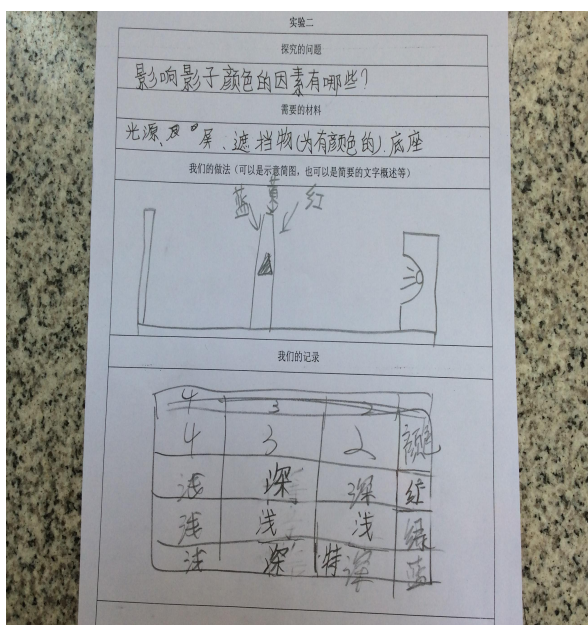 实验二
探究的问题
影响影子颜色的因素有哪些?
需要的材料
光源、屏、遮挡物(为有颜色的).底座
我们的做法(可以是示意简图,也可以是简要的文字概述等)
蓝 黄 红
我们的记录
4 3 2
4 3 2 颜色
浅 深 深 红
浅 浅 浅 绿
浅 深 特深 蓝